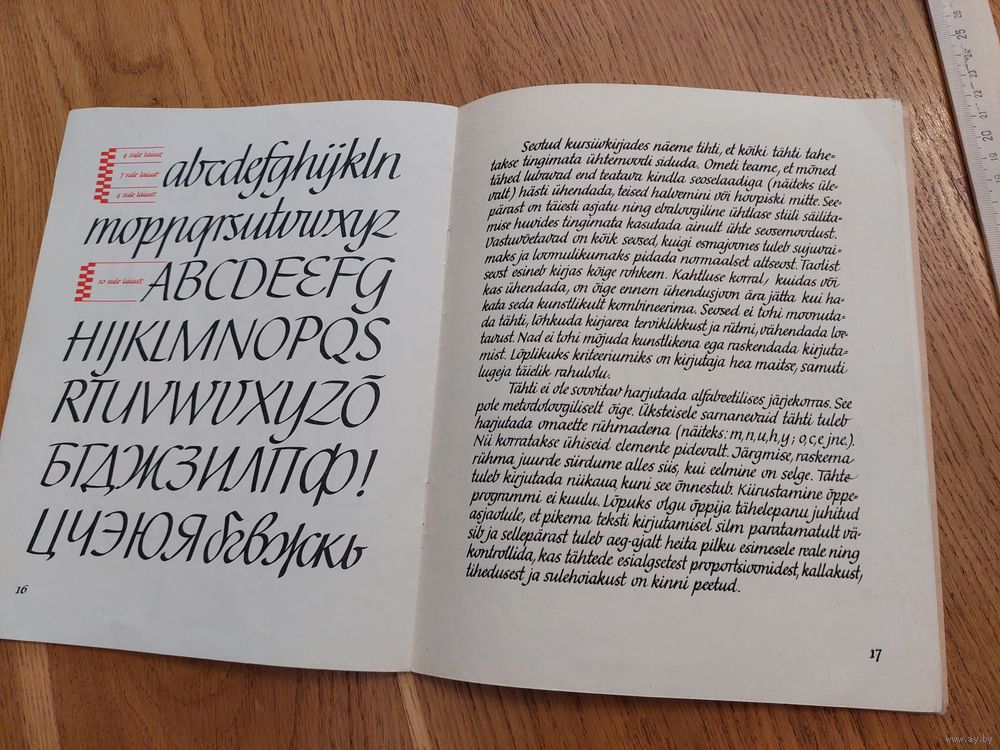 4 sule laiust
7 sule laiust
4 sule laiust
abcdefghijkln
moppqrsutuvwxyz
10 sule laiust
ABCDEEFG
HIJKLMNOPQS
RTUVWVXYZÕ
БГДЖЗИЛПФ!
ЦЧЭЮЯбгвджскь
16
Seotud kursiivkirjades näeme tihti, et kõiki tähti tahe=
takse tingimata ühtemoodi siduda. Ometi teame, et mõned
tähed lubavad end teatava kindla seoselaadiga (näiteks üle=
valt) hästi ühendada, teised halvemini või hoopiski mitte. See=
pärast on täiesti asjatu ning ebaloogiline ühtlase stiili säilita=
mise huvides tingimata kasutada ainult ühte seosemoodust.
Vastuvõetavad on kõik seosed, kuigi esmajoones tuleb sujuvai=
maks ja loomulikumaks pidada normaalset altseost. Taolist
seost esineb kirjas kõige rohkem. Kahtluse korral, kuidas või
kas ühendada, on õige ennem ühendusjoon ära jätta kui ha=
kata seda kunstlikult kombineerima. Seosed ei tohi moonuta=
da tähti, lõhkuda kirjarea terviklikkust ja rütmi, vähendada loe=
tavust. Nad ei tohi mõjuda kunstlikena ega raskendada kirjuta=
mist. Lõplikuks kriteeriumiks on kirjutaja hea maitse, samuti
lugeja täielik rahulolu.
Tähti ei ole soovitav harjutada alfabeetilises järjekorras. See
pole metodoloogiliselt õige. Üksteisele sarnanevaid tähti tuleb
harjutada omaette rühmadena (näiteks: m,n,u,h,y; o,c,e jne.).
Nii korratakse ühiseid elemente pidevalt. Järgmise, raskema
rühma juurde siirdume alles siis, kui eelmine on selge. Tähte
tuleb kirjutada niikaua, kuni see õnnestub. Kiirustamine õppe=
programmi ei kuulu. Lõpuks olgu õppija tähelepanu juhitud
asjaolule, et pikema teksti kirjutamisel silm paratamatult vä=
sib ja sellepärast tuleb aeg-ajalt heita pilku esimesele reale ning
kontrollida, kas tähtede esialgsetest proportsioonidest, kallakust,
tihedusest ja sulehoiakust on kinni peetud.
17
19 20 21 22 23 24 25 26
www.ay.by